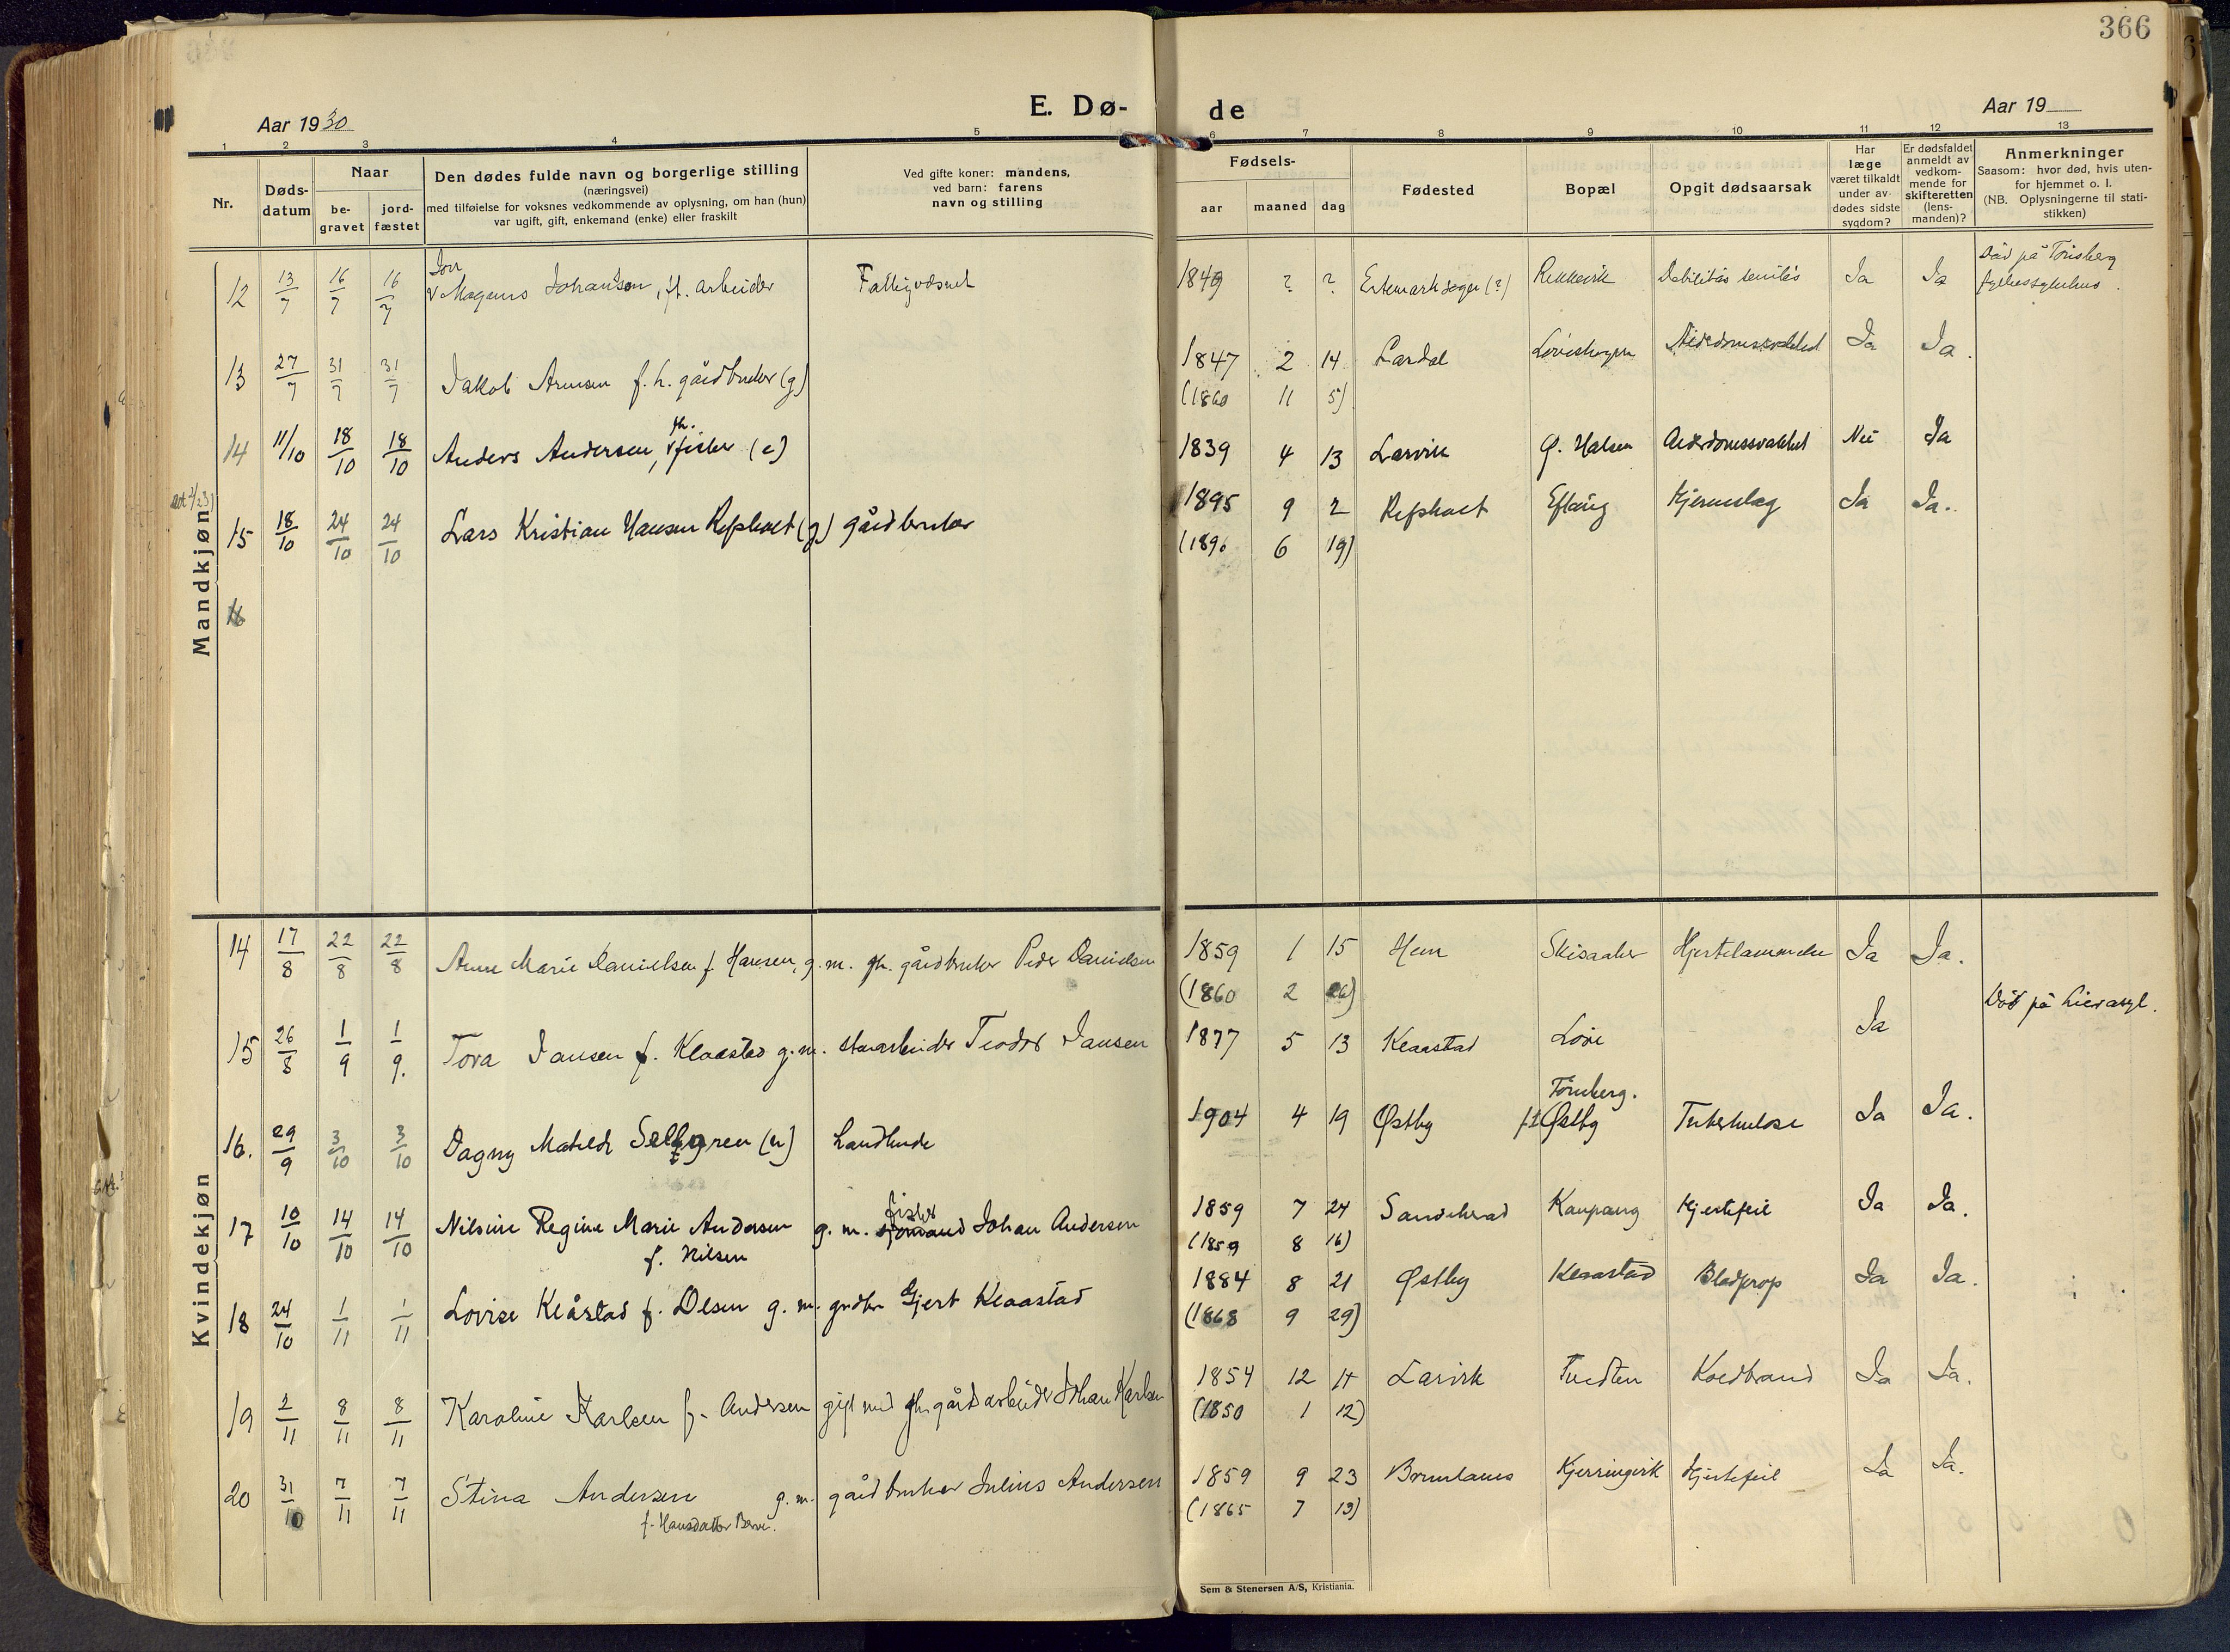 366
Aar 1930
E. Dø-
de
Aar 19
1 2 3 4 5 6 7 8 9 10 11 12 13
Nr.
Døds-
datum
Naar
be-
gravet
jord-
fæstet
Den dødes fulde navn og borgerlige stilling
(næringsvei)
med tilføielse for voksnes vedkommende av oplysning, om han (hun)
var ugift, gift, enkemand (enke) eller fraskilt
Ved gifte koner: mandens,
ved barn: farens
navn og stilling
Fødsels-
aar maaned dag
Fødested
Bopæl
Opgit dødsaarsak
Har
læge
været tilkaldt
under av-
dødes sidste
sygdom?
Er dødsfaldet
anmeldt av
vedkom-
mende for
skifteretten
(lens-
manden)?
Anmerkninger
Saasom: hvor død, hvis uten-
for hjemmet o. l.
(NB. Oplysningerne til stati-
stikken)
Mandkjøn
12 13/7 16/7 16/7 Magnus Johanson, arbeider 1849 ? ? (?) Rekkevik Ja Ja Død på Tønsberg
fylkessykehus.
13 27/7 31/7 31/7 Jakob f. h. gårdbruker (g) 1847 2 14 Lardal Alderdomssvakhet Ja Ja.
(1860 11 5)
14 11/10 18/10 18/10 Anders Andersen, fh. fisker (e) 1839 4 13 Larvik Ø. Halsen Alderdomssvakhet Nei Ja
15 18/10 24/10 24/10 Lars Kristian Hansen Refsholt (g) gårdbruker 1895 9 2 Refsholt Eftang Hjerneslag Ja Ja.
(1896 6 19)
16
Kvindekjøn
14 17/8 22/8 22/8 Anne Marie Danielsen f. Hansen, g. m. fh. gårdbruker Peder Danielsen 1859 1 15 Hem Skisaaker Hjertelammelse Ja Ja.
(1860 2 26)
15 26/8 1/9 1/9. Tora Jansen f. Klaastad g. m. Teodor Jansen 1877 5 13 Klaastad Løve Ja Død på Lierasyl.
16. 29/9 3/10 3/10 Dagny Matilde Sellgren (u) Landhandler 1904 4 19 Østby Tønsberg.
Østby Tuberkulose Ja Ja.
17 10/10 14/10 14/10 Nilsine Regine Marie Andersen g. m. fisker sjømand Johan Andersen 1859 7 24 Sandeherad Kaupang Hjertefeil Ja Ja.
f. Nilsen (1859 8 16)
18 24/10 1/11 1/11 Lovise Klåstad f. Olsen g. m. grdbr Gjert Klaastad 1884 8 21 Østby Klaastad Blodprop Ja Ja.
(1868 9 29)
19 2/11 8/11 8/11 Karoline Karlsen f. Andersen gift med fh. gårdarbeider Johan Karlsen 1854 12 14 Larvik Tuedten Koldbrand Ja Ja.
(1850 1 12)
20 31/10 7/11 7/11 Stina Andersen g. m. gårdbruker Julius Andersen 1859 9 23 Brunlanes Kjerringvik Hjertefeil Ja Ja.
f. Hansdatter (1865 7 13)
Sem & Stenersen A/S, Kristiania.